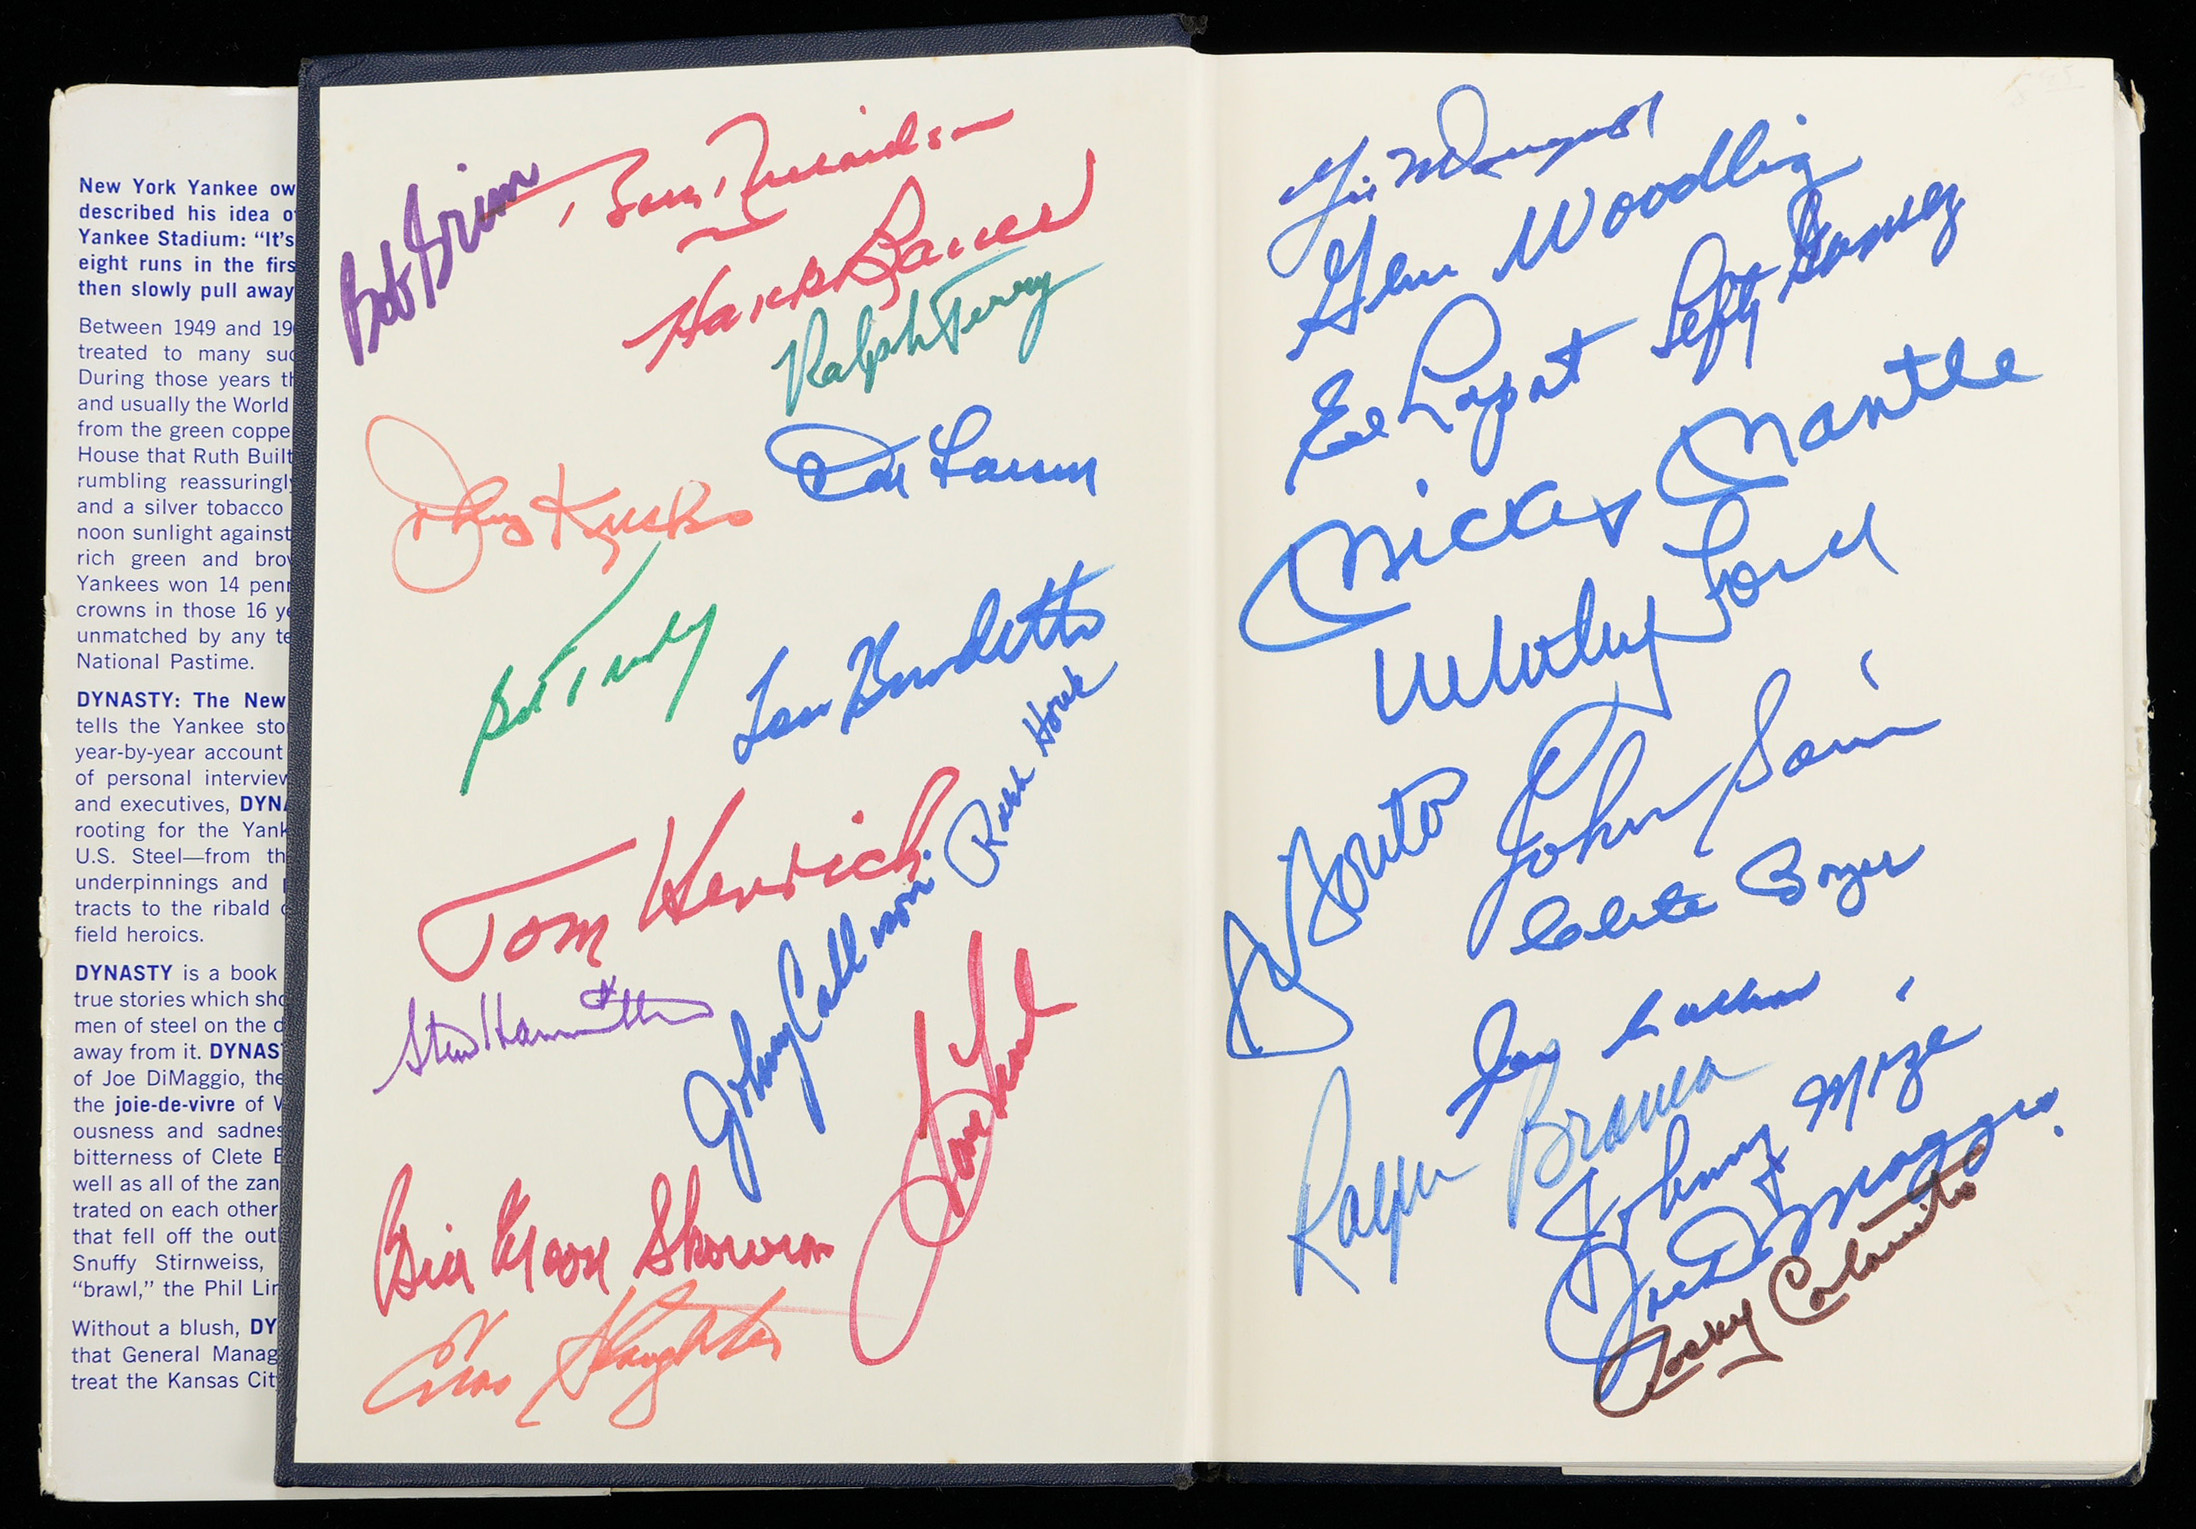 New York Yankee ow
described his idea o
Yankee Stadium: “It’s
eight runs in the firs
then slowly pull away
Between 1949 and 19
treated to many suc
During those years th
and usually the World
from the green coppe
House that Ruth Built
rumbling reassuringly
and a silver tobacco
noon sunlight against
rich green and brow
Yankees won 14 penn
crowns in those 16 ye
unmatched by any te
National Pastime.
DYNASTY: The New
tells the Yankee sto
year-by-year account
of personal interview
and executives, DYNA
rooting for the Yank
U.S. Steel—from th
underpinnings and
tracts to the ribald
field heroics.
DYNASTY is a book
true stories which sho
men of steel on the d
away from it. DYNAS
of Joe DiMaggio, the
the joie-de-vivre of
ousness and sadnes
bitterness of Clete
well as all of the zan
trated on each other
that fell off the out
Snuffy Stirnweiss,
“brawl,” the Phil Lin
Without a blush, DY
that General Manag
treat the Kansas City
Bob Grim
Hank Bauer
Ralph Terry
Johnny Kucks
Don Larsen
Bob Turley
Lew Burdette
Ralph Houk
Tom Henrich
Steve Hamilton
Johnny Callison
Bill Moose Skowron
Enos Slaughter
Gene Woodling
Lefty Gomez
Ed Lopat
Mickey Mantle
Whitey Ford
J Bouton
John Sain
Clete Boyer
Ralph Branca
Johnny Mize
Joe DiMaggio
Rocky Colavito